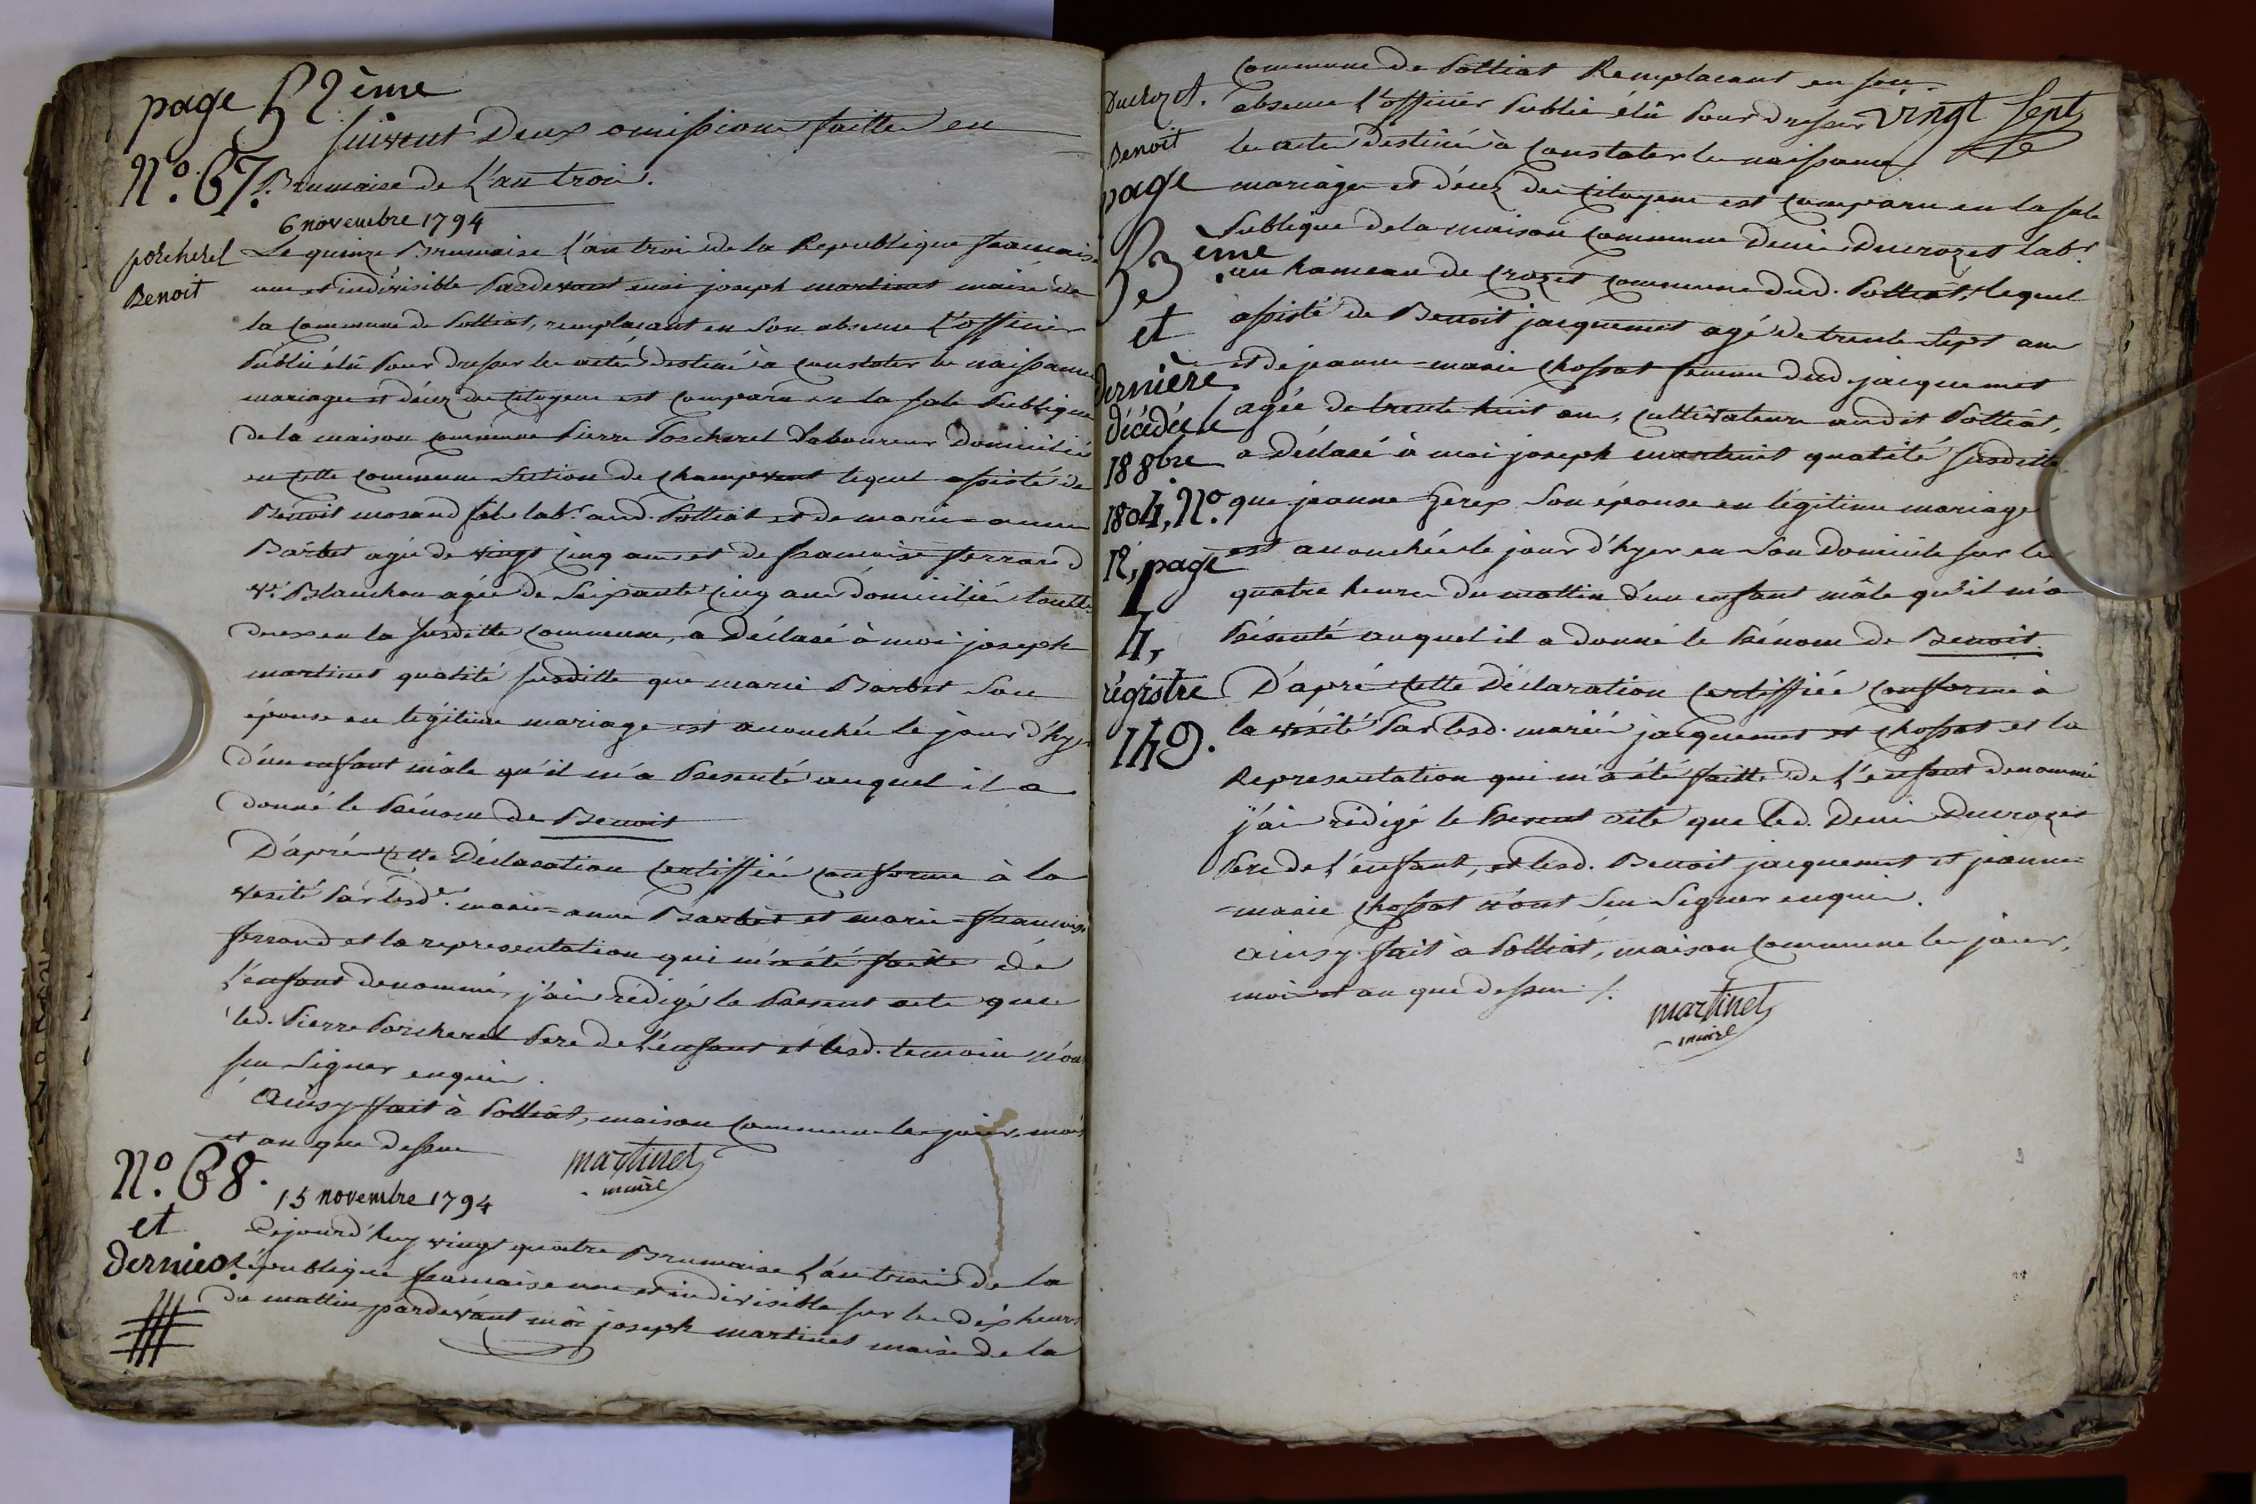 page 52ème
suivent Deux omissions faittes en
N°. 67. Brumaire de L'an trois.
6 novembre 1794
porcherel Benoit
Le quinze Brumaire L'an trois de la Republique francaise
une et indivisible Pardevant moi joseph martinet maire de
la Commune de Polliat, remplacant en son absence L'officier
Public élû Pour dresser les actes destinés à Constater les naissances
mariages et décez des Citoyens est Comparu en la sale Publique
De la maison commune Pierre Porcherel Laboureur Domicilié
en cette commune section de Champvent lequel assisté de
Benoit morand fils labr. aud. Polliat et de marie=anne
Barbet agée de vingt cinq ans et de francoise ferrand
ve. Blanchon agée de Soixante cinq ans domiciliées toutes
deux en la susditte Commune, a Déclaré à moi joseph
martinet qualité susditte que marie Barbet Son
épouse en légitime mariage est acouchée le jour d'hyer
D'un enfant mâle qu'il m'a Présenté auquel il a
Donné le Prénom De Benoit
D'après Cette Déclaration Certiffiée Conforme à la
verité Par lesd. marie=anne Barbet et marie=francoise
ferrand et la representation qui m'a été faitte de
L'enfant denommé, j'ai rédigé le Present acte que
led. Pierre Porcherel Pere de L'enfant et lesd. temoins n'ont
su signer enquis.
Ainsy fait à Polliat, maison Commune les jour, mois
et an que dessus
martinet
maire
N°. 68. et dernier.
15 novembre 1794
Cejourd'huy vingt quatre Brumaire L'an trois De la
république francaise une et indivisible sur les dix heures
du mattin pardevant moi joseph martinet maire De la
Commune de Polliat Remplacant en son
Ducrozet. Benoit
absence L'officier Public élû Pour dresser vingt sept
les actes destinés à Constater les naissances
page 53ème et dernière.
mariages et décez des Citoyens est Comparu en la sale
Publique de la maison Commune Denis Ducrozet labr.
au hameau de Crozet Commune dud. Polliat, lequel
assisté de Benoit jacquemet agé de trente sept ans
et de jeanne=marie Chossat femme dud. jacquemet
agée de trente huit ans, cultivateurs audit Polliat,
a Déclaré à moi joseph martinet qualité susditte
décédée le 18 8bre 1804, N°. 12, page 4, régistre 149.
que jeanne Gerex Son épouse en légitime mariage
est acouchée le jour d'hyer en Son Domicile sur les
quatre heures du mattin d'un enfant mâle qu'il m'a
Présenté auquel il a donné le Prénom De Benoit
D'après Cette Déclaration Certiffiée Conforme à
la vérité Par lesd. mariés jacquemet et Chossat et la
Representation qui m'a été faitte de L'enfant denommé
j'ai rédigé le Present acte que led. Denis Ducrozet
Pere de L'enfant, et lesd. Benoit jacquemet et jeanne=
=marie Chossat n'ont Su Signer enquis.
Ainsy fait à Polliat, maison Commune les jour,
mois et an que dessus ./.
martinet
maire